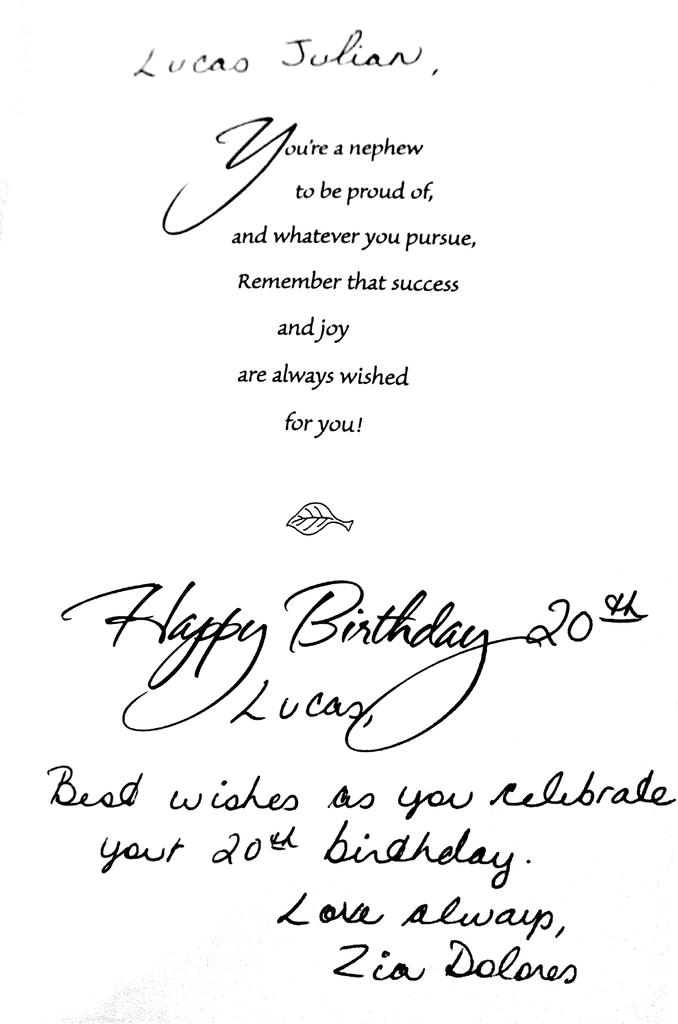 Lucas Julian,
You're a nephew
to be proud of,
and whatever you pursue,
Remember that success
and joy
are always wished
for you!
Happy Birthday 20th
Lucas,
Best wishes as you celebrate
your 20th birthday.
Love always,
Zia Dolores